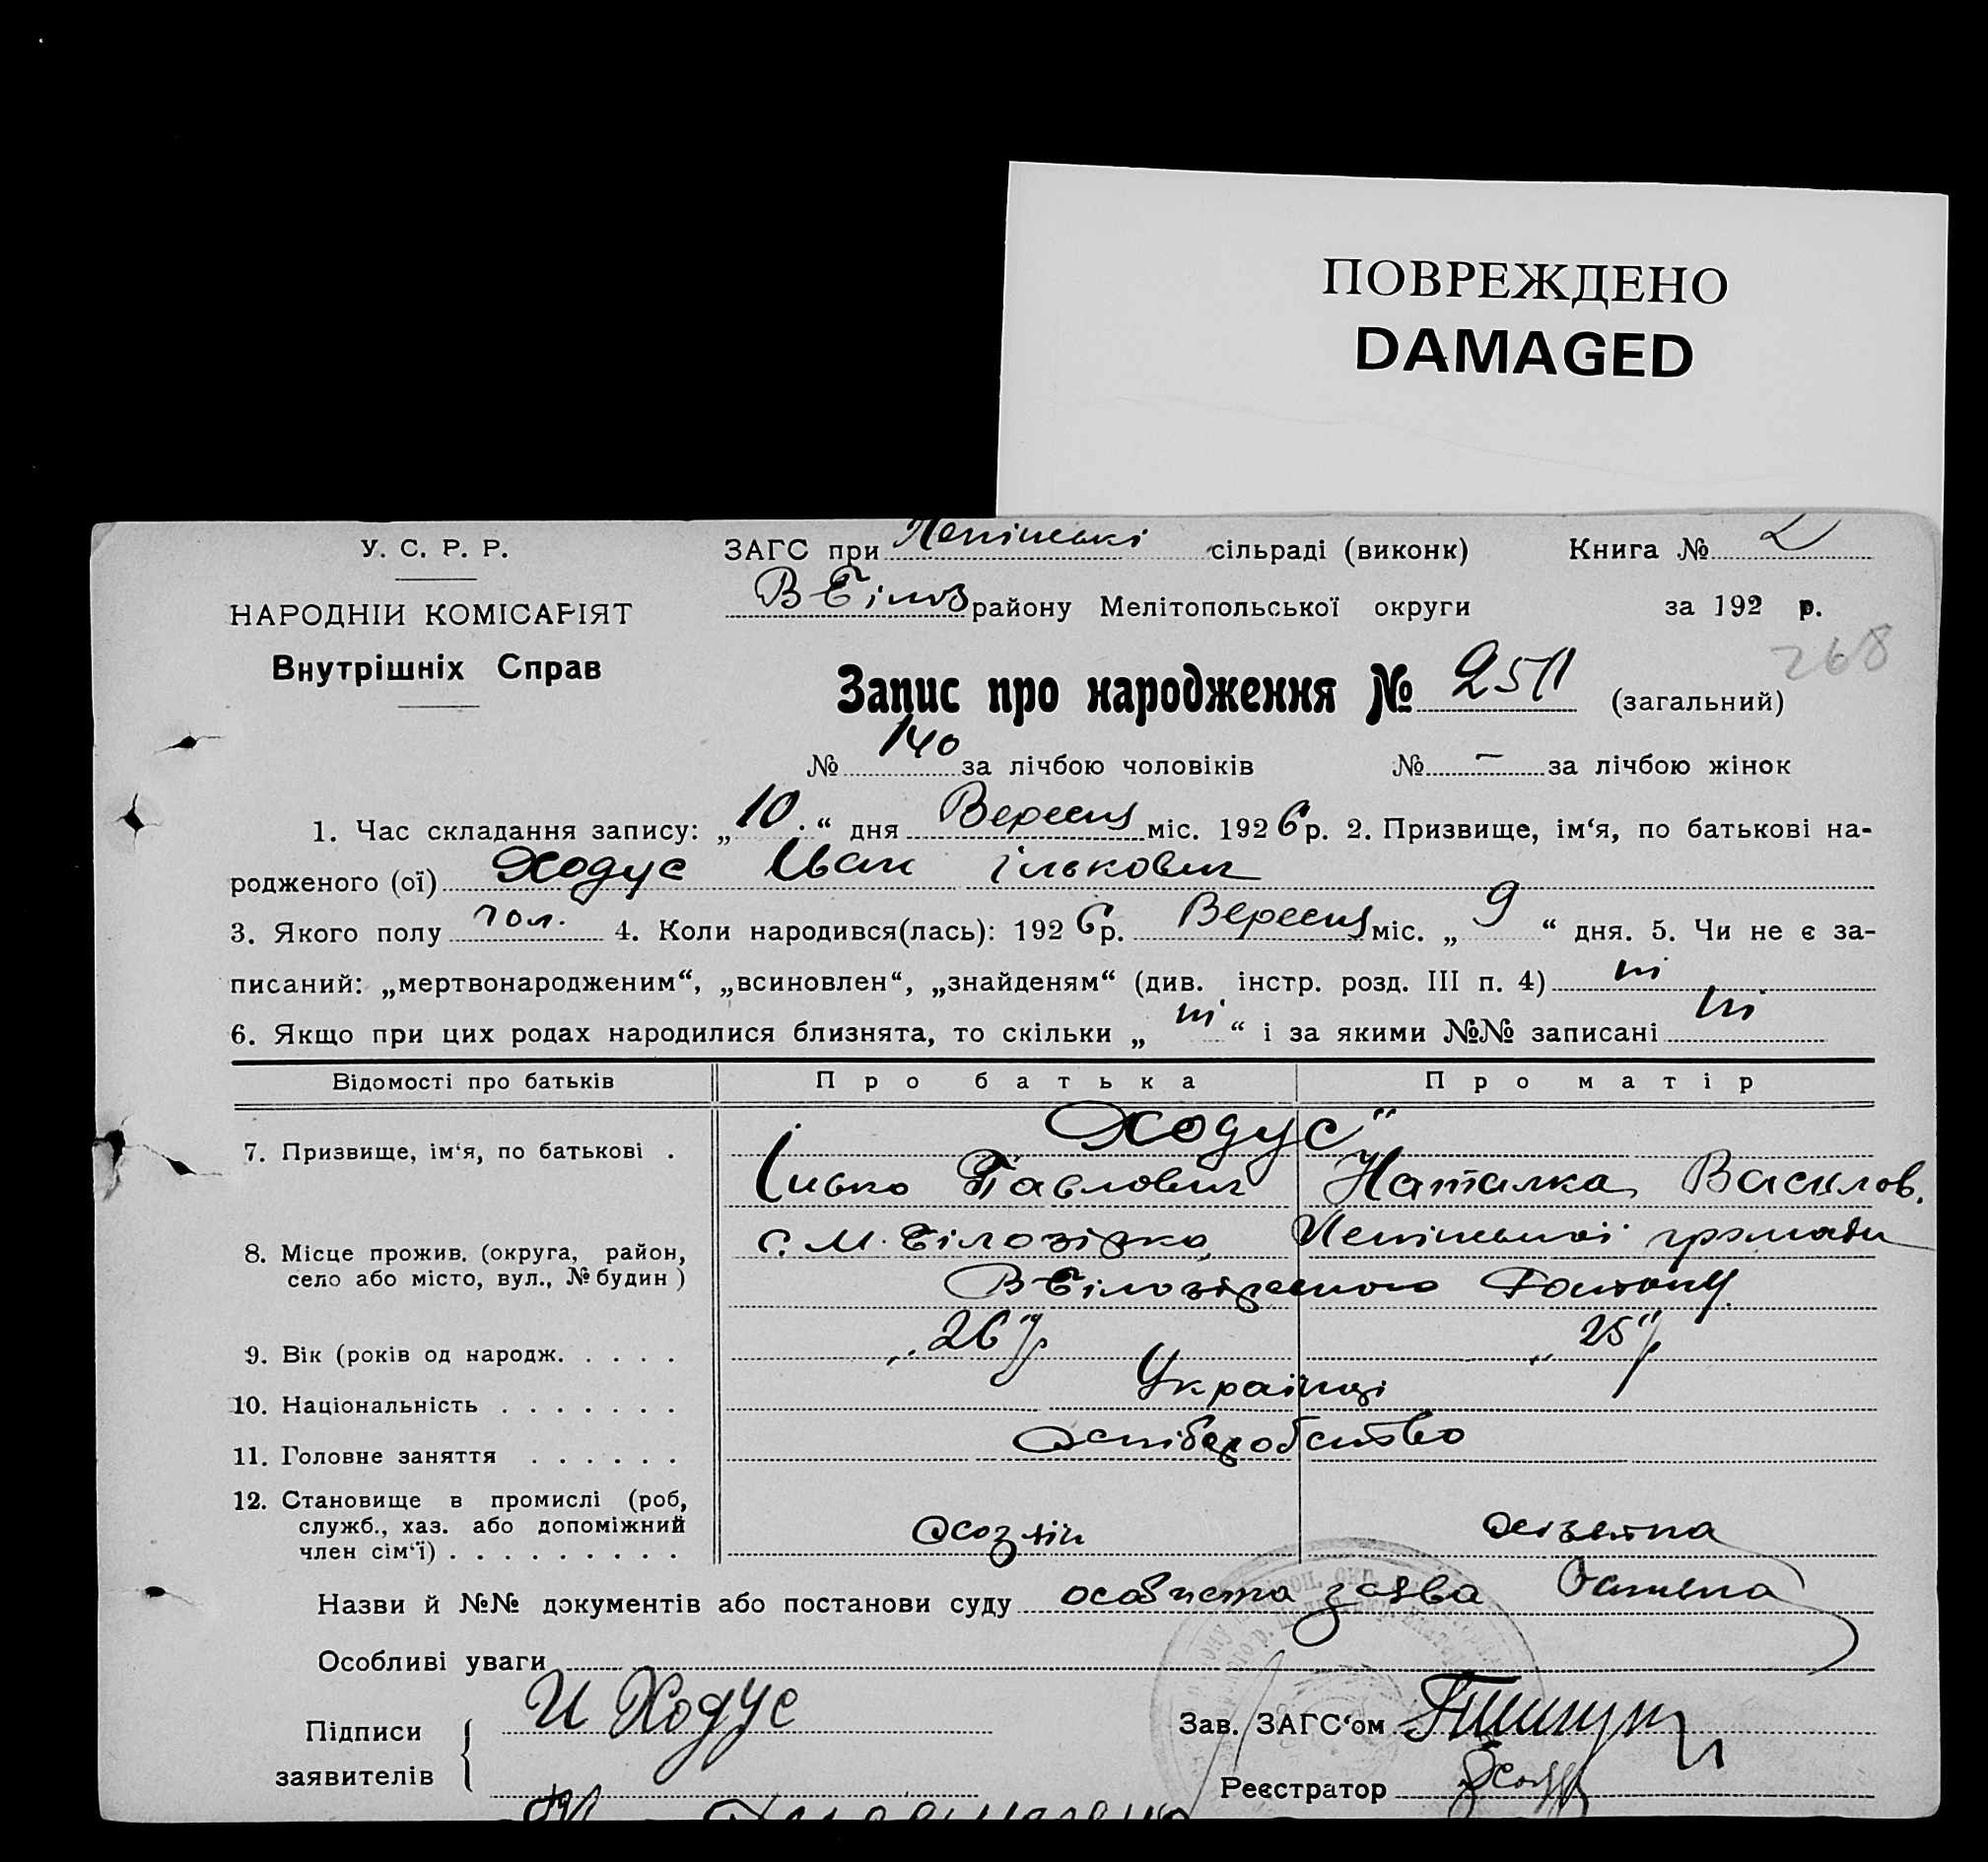 ПОВРЕЖДЕНО
DAMAGED
У. С. Р. Р.
ЗАГС при Ленінські сільраді (виконк) Книга № 2
В Білоз району Мелітопольської округи за 192 р.
НАРОДНІЙ КОМІСАРІЯТ
Внутрішніх Справ
268
Запис про народження № (загальний)
№ 140 за лічбою чоловіків № — за лічбою жінок
1. Час складання запису: „10“ дня Вересня міс. 1926 р. 2. Призвище, ім‘я, по батькові на-
родженого (ої) Ходус Іван Ількович
3. Якого полу чол. 4. Коли народився(лась): 1926 р. Вересня міс. „9“ дня. 5. Чи не є за-
писаний: „мертвонародженим“, „всиновлен“, „знайденям“ (див. інстр. розд. III п. 4) ні
6. Якщо при цих родах народилися близнята, то скільки „ні“ і за якими №№ записані ні
Відомості про батьків Про батька Про матір
7. Призвище, ім‘я, по батькові . Ходус
Ілько Павлович Наталка Василов.
8. Місце прожив. (округа, район, с. М. Білозірка, Ленінської громади
село або місто, вул., № будин) В Білозірського Району.
9. Вік (років од народж. . . . . „26 р „25“ р
10. Національність . . . . . . . Українці
11. Головне заняття . . . . . . Хліборобство
12. Становище в промислі (роб,
служб., хаз. або допоміжний
член сім‘ї) . . . . . . . . . Хозяїн
Назви й №№ документів або постанови суду особиста заява батька
Особливі уваги
Підписи И Ходус Зав. ЗАГС‘ом
заявителів Реєстратор